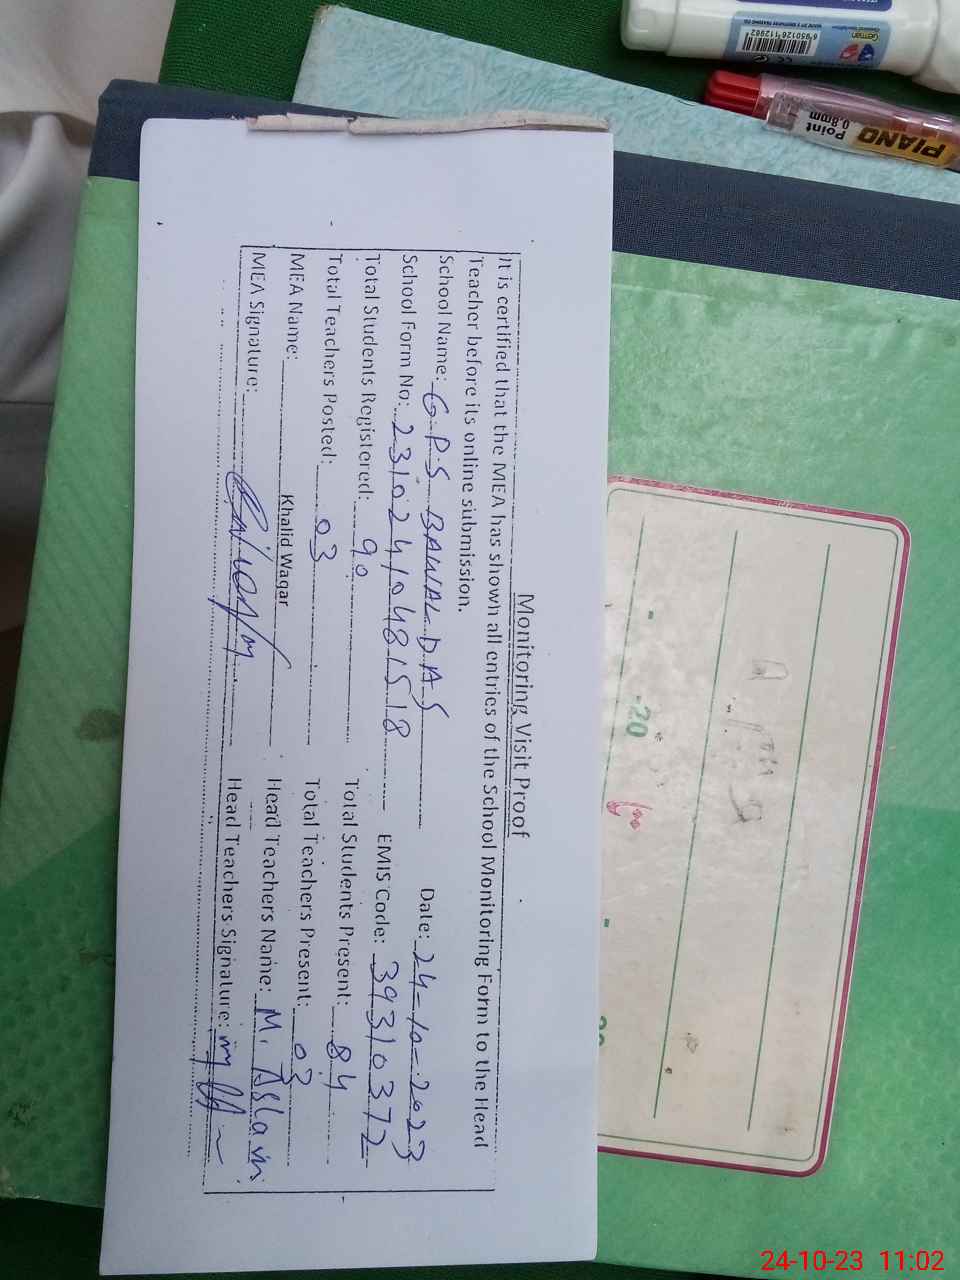 Monitoring Visit Proof
It is certified that the MEA has shown all entries of the School Monitoring Form to the Head
Teacher before its online submission.
School Name: G.P.S BAWAL DAS Date: 24-10-2023
School Form No: 23102410481518 EMIS Code: 39310372
Total Students Registered: 90 Total Students Present: 84
Total Teachers Posted: 03 Total Teachers Present: 03
MEA Name: Khalid Waqar Head Teachers Name: M. Aslam
MEA Signature: Head Teachers Signature:
German
6950126112982
CE
PIANO
Point
0.8mm
-20
24-10-23 11:02